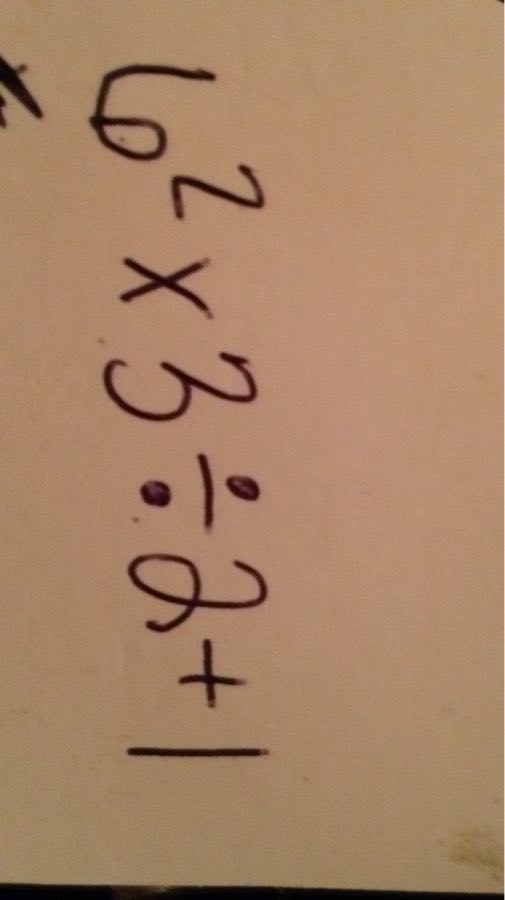 6² × 3 ÷ 2 + 1